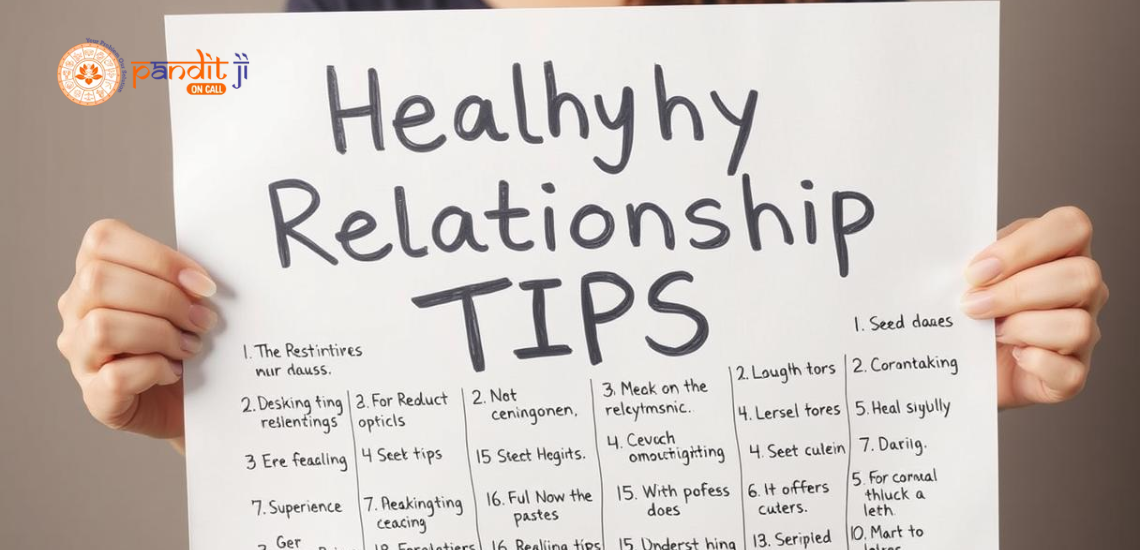 Your Problem Our Solution
pandit ji
ON CALL
Healhyhy
Relationship
TIPS
1. The Restintires
nur dauss.
2. Desking ting
reslentings
3 Ere feaaling
7. Superience
Ger
2. For Reduct
opticls
4 Seek tips
7. Aeakingting
ceacing
2. Not
ceningonen,
15 Stect Hegits.
16. Ful Now the
pastes
16. Realiing tips
3. Meak on the
relcytmsnic.
4. Cevach
omouthigiting
15. With pofess
does
15. Underst hing
2. Laugth tors
4. Lersel tores
4. Seet culein
6. It offers
cuters.
13. Seripled
1. Seed daaes
2. Corantaking
5. Heal sigully
7. Dariig.
5. For cornal
thluck a
leth.
10. Mart to